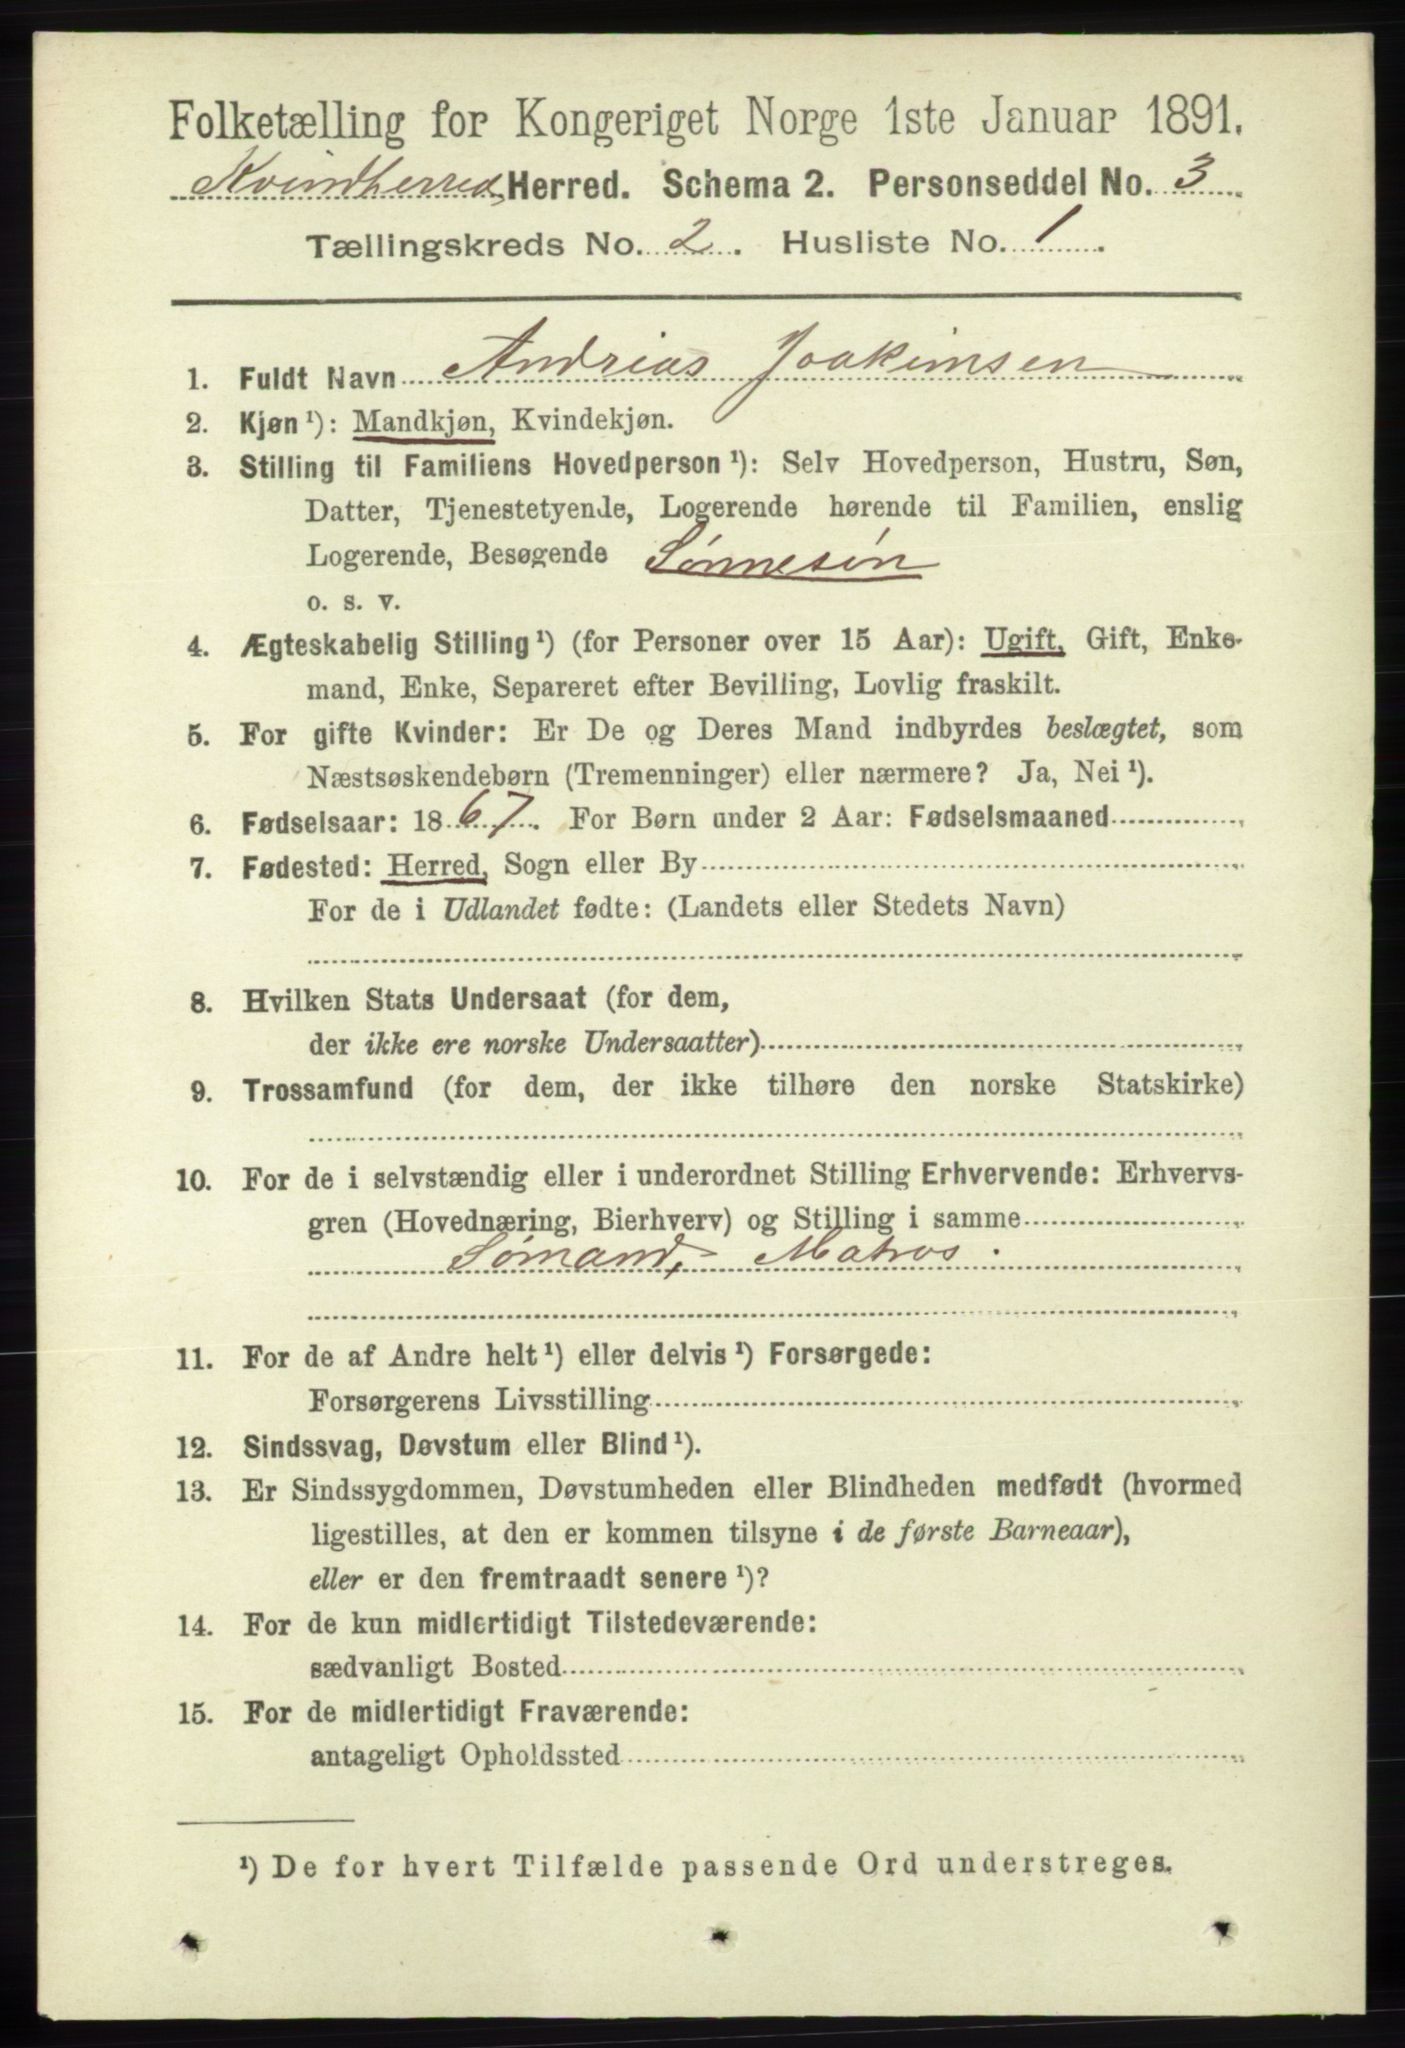 Folketælling for Kongeriget Norge 1ste Januar 1891.
Kvindherred Herred. Schema 2. Personseddel No. 3
Tællingskreds No. 2. Husliste No. 1.
1. Fuldt Navn Andrias Joakimsen
2. Kjøn ¹): Mandkjøn, Kvindekjøn.
3. Stilling til Familiens Hovedperson ¹): Selv Hovedperson, Hustru, Søn,
Datter, Tjenestetyende, Logerende hørende til Familien, enslig
Logerende, Besøgende Sønnesøn
o. s. v.
4. Ægteskabelig Stilling ¹) (for Personer over 15 Aar): Ugift, Gift, Enke-
mand, Enke, Separeret efter Bevilling, Lovlig fraskilt.
5. For gifte Kvinder: Er De og Deres Mand indbyrdes beslægtet, som
Næstsøskendebørn (Tremenninger) eller nærmere? Ja, Nei ¹).
6. Fødselsaar: 1867. For Børn under 2 Aar: Fødselsmaaned
7. Fødested: Herred, Sogn eller By
For de i Udlandet fødte: (Landets eller Stedets Navn)
8. Hvilken Stats Undersaat (for dem,
der ikke ere norske Undersaatter)
9. Trossamfund (for dem, der ikke tilhøre den norske Statskirke)
10. For de i selvstændig eller i underordnet Stilling Erhvervende: Erhvervs-
gren (Hovednæring, Bierhverv) og Stilling i samme
Sømand, Matros.
11. For de af Andre helt ¹) eller delvis ¹) Forsørgede:
Forsørgerens Livsstilling
12. Sindssvag, Døvstum eller Blind ¹).
13. Er Sindssygdommen, Døvstumheden eller Blindheden medfødt (hvormed
ligestilles, at den er kommen tilsyne i de første Barneaar),
eller er den fremtraadt senere ¹)?
14. For de kun midlertidigt Tilstedeværende:
sædvanligt Bosted
15. For de midlertidigt Fraværende:
antageligt Opholdssted
¹) De for hvert Tilfælde passende Ord understreges.